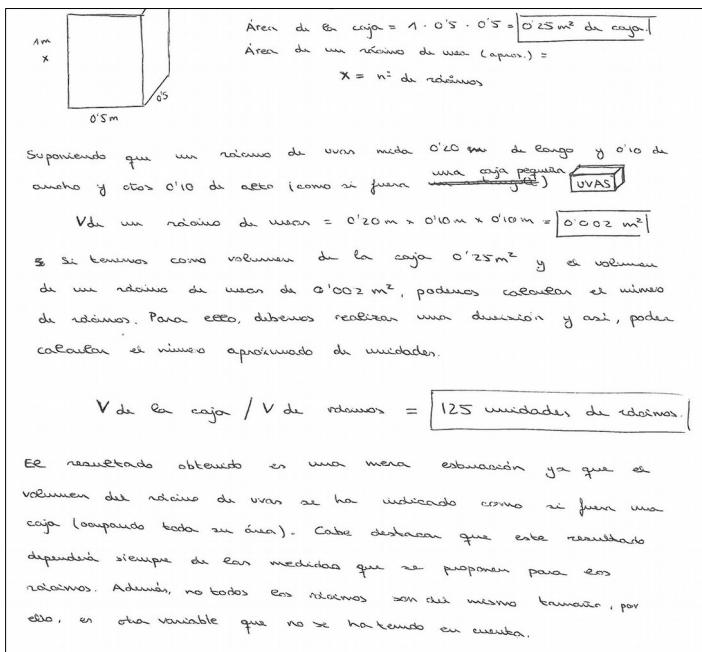 Área de la caja = 1 · 0'5 · 0'5 = 0'25 m² de caja.
1m
x
Área de un racimo de uvas (aprox.) =
X = nº de racimos
0'5
0'5 m
Suponiendo que un racimo de uvas mida 0'20 m de largo y 0'10 de
ancho y otos 0'10 de alto (como si fuera una caja pequeña) UVAS
V de un racimo de uvas = 0'20 m x 0'10 m x 0'10 m = 0'002 m²
Si tenemos como volumen de la caja 0'25 m² y el volumen
de un racimo de uvas de 0'002 m², podemos calcular el número
de racimos. Para ello, debemos realizar una división y así, poder
calcular el número aproximado de unidades.
V de la caja / V de racimos = 125 unidades de racimos.
El resultado obtenido es una mera estimación ya que el
volumen del racimo de uvas se ha indicado como si fuera una
caja (ocupando toda su área). Cabe destacar que este resultado
dependerá siempre de las medidas que se proponen para los
racimos. Además, no todos los racimos son del mismo tamaño, por
ello, es otra variable que no se ha tenido en cuenta.